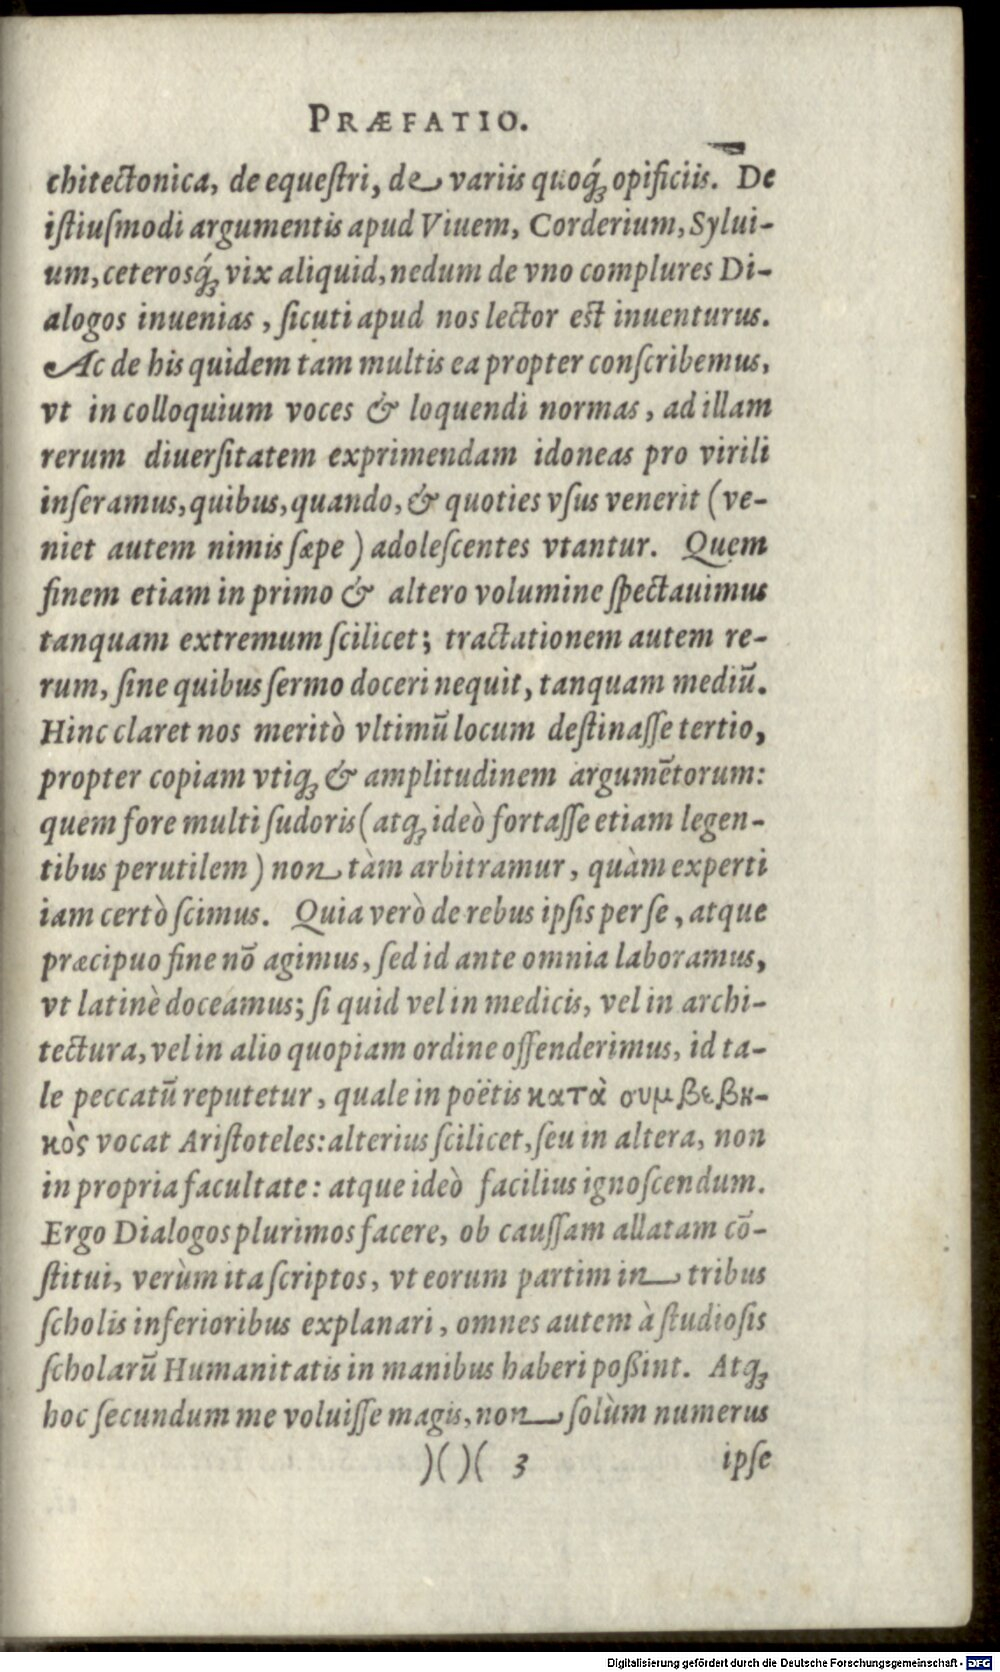 PRÆFATIO.
chitectonica, de equeſtri, de variis quoq́ꝫ opificiis. De
iſtiuſmodi argumentis apud Viuem, Corderium, Sylui-
um, ceterosq́ꝫ vix aliquid, nedum de vno complures Di-
alogos inuenias, ſicuti apud nos lector est inuenturus.
Ac de his quidem tam multis ea propter conſcribemus,
vt in colloquium voces & loquendi normas, ad illam
rerum diuerſitatem exprimendam idoneas pro virili
inſeramus, quibus, quando, & quoties vſus venerit (ve-
niet autem nimis ſæpe) adoleſcentes vtantur. Quem
finem etiam in primo & altero volumine ſpectauimus
tanquam extremum ſcilicet; tractationem autem re-
rum, ſine quibus ſermo doceri nequit, tanquam mediū.
Hinc claret nos meritò vltimū locum deſtinaſſe tertio,
propter copiam vtiqꝫ & amplitudinem argumētorum:
quem fore multi ſudoris (atqꝫ ideò fortaſſe etiam legen-
tibus perutilem) non tàm arbitramur, quàm experti
iam certò ſcimus. Quia verò de rebus ipſis per ſe, atque
præcipuo fine nō agimus, ſed id ante omnia laboramus,
vt latinè doceamus; ſi quid vel in medicis, vel in archi-
tectura, vel in alio quopiam ordine offenderimus, id ta-
le peccatū reputetur, quale in poëtis κατὰ συμβεβη-
κὸς vocat Ariſtoteles: alterius ſcilicet, ſeu in altera, non
in propria facultate: atque ideò facilius ignoſcendum.
Ergo Dialogos plurimos facere, ob cauſſam allatam cō-
ſtitui, verùm ita ſcriptos, vt eorum partim in tribus
ſcholis inferioribus explanari, omnes autem à ſtudioſis
ſcholarū Humanitatis in manibus haberi poßint. Atqꝫ
hoc ſecundum me voluiſſe magis, non ſolùm numerus
)( )( 3 ipſe
Digitalisierung gefördert durch die Deutsche Forschungsgemeinschaft - DFG